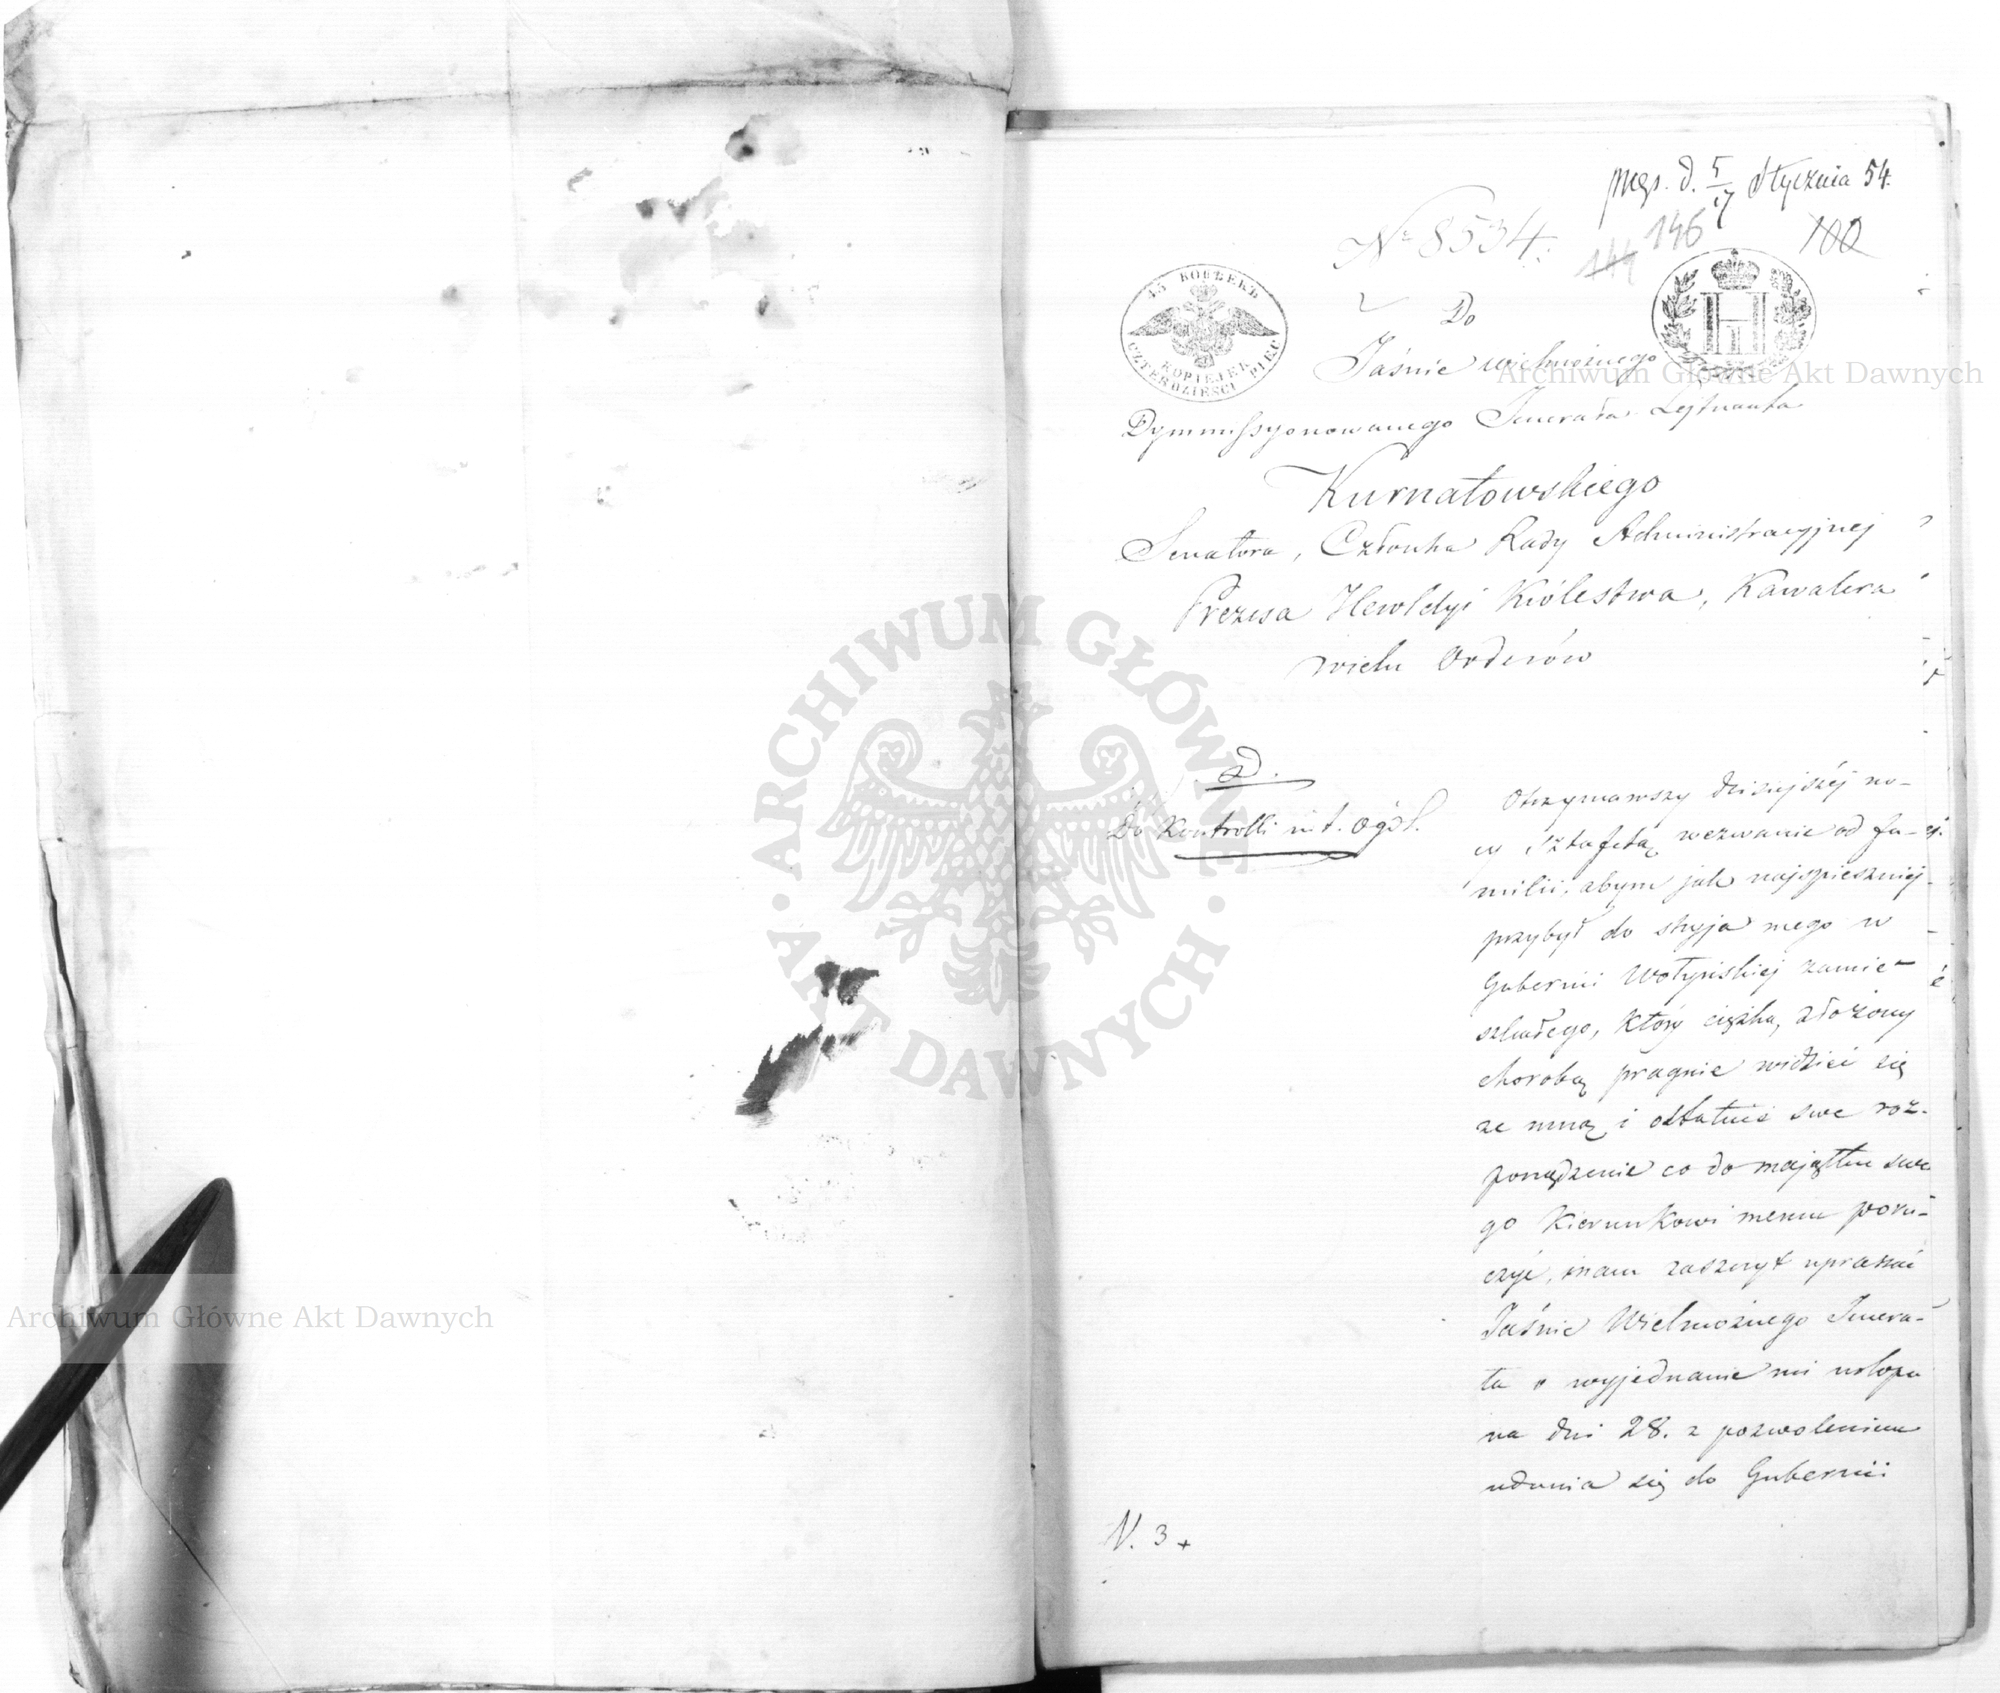 prez. d. 5/17 Stycznia 54.
No 8534.
144 146 100
45 КОПѢЕКЪ
KOPIEJEK
CZTERDZIEŚCI PIĘĆ
Do
Jaśnie wielmożnego
Dymmissyonowanego Jenerała Lejtnanta
Kurnatowskiego
Senatora, Członka Rady Administracyjnej
Prezesa Heroldyi Królestwa, Kawalera
wielu Orderów
Do Kontrolli
Otrzymawszy dzisiejszéj no-
cy sztafetą wezwanie od fa-
milii, abym jak najspieszniej
przybył do stryja mego w
Gubernii Wołyńskiej zamie-
szkałego, który ciężką złożony
chorobą pragnie widzieć się
ze mną i ostatnie swe roz-
porządzenie co do majątku swe
go kierunkowi memu poru-
czyć, mam zaszczyt upraszać
Jaśnie Wielmożnego Jenera-
ła o wyjednanie mi urlopu
na dni 28. z pozwoleniem
udania się do Gubernii
N. 3
Archiwum Główne Akt Dawnych
Archiwum Główne Akt Dawnych
ARCHIWUM GŁÓWNE AKT DAWNYCH